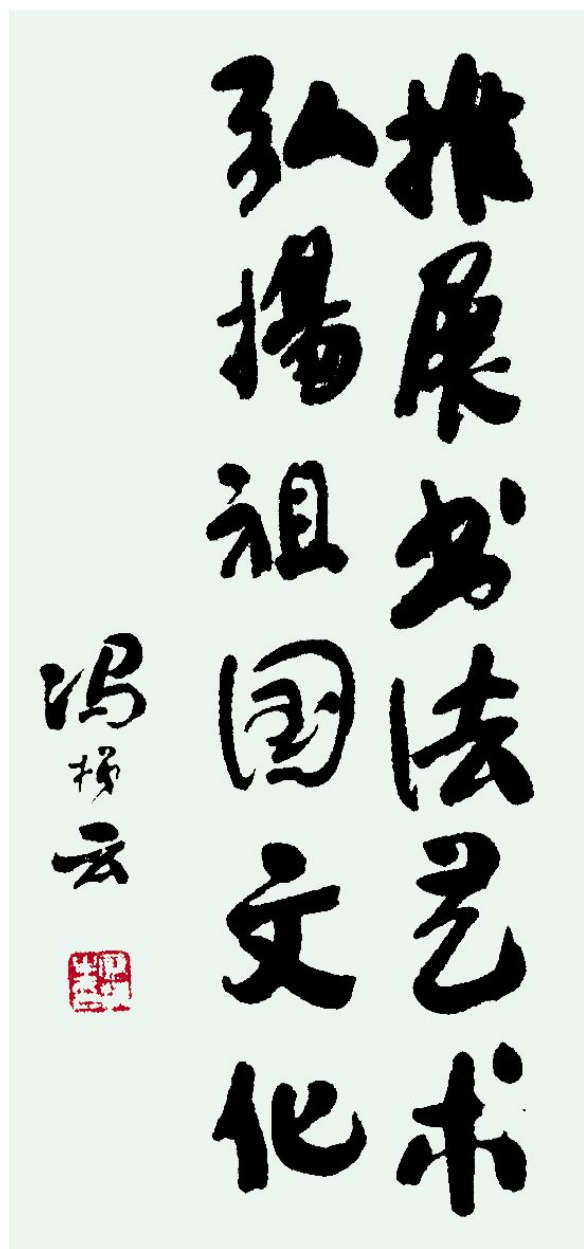 推展书法艺术
弘揚祖国文化
冯梯云